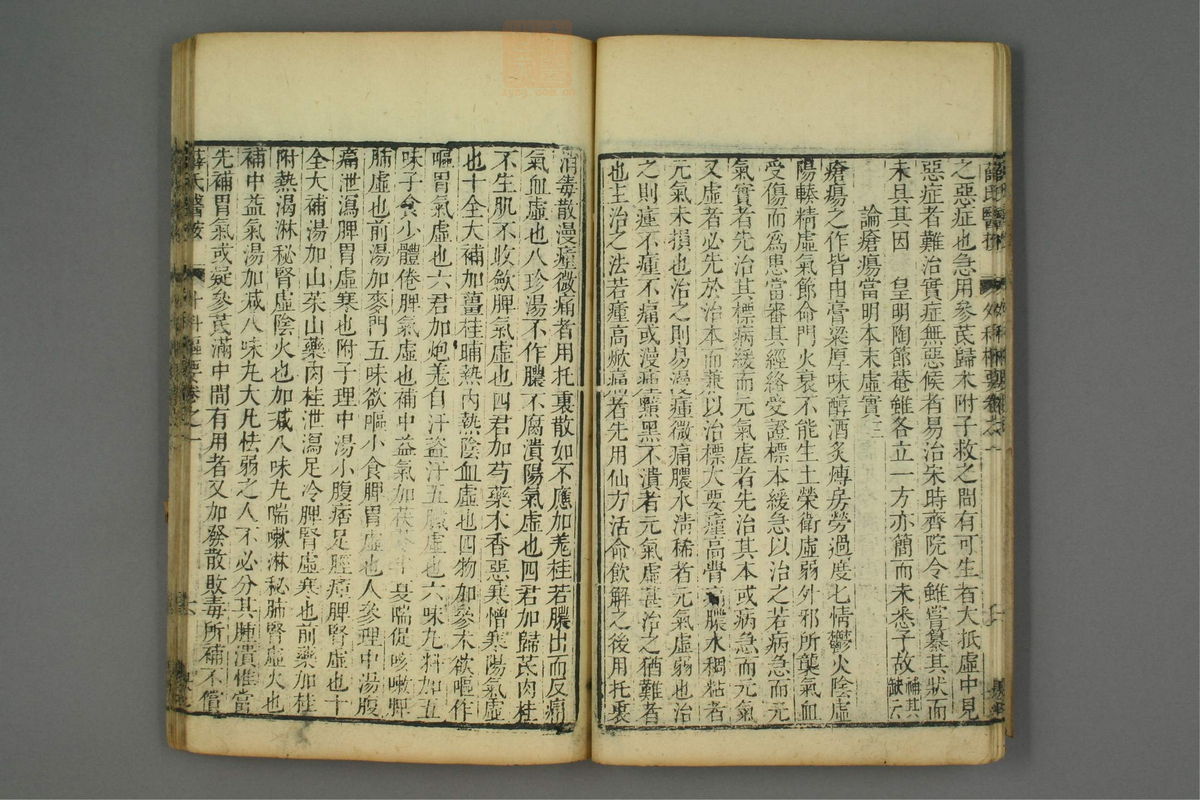 之惡症也急用參芪歸朮附子救之間有可生者大抵虛中見
惡症者難治實症無惡候者易治宋時齊院令雖嘗纂其狀而
未具其因 皇明陶節菴雖各立一方亦簡而未悉予故補其缺云
論瘡瘍當明本末虛實三
瘡瘍之作皆由膏粱厚味醇酒炙煿房勞過度七情鬱火陰虛
陽輳精虛氣節命門火衰不能生土榮衛虛弱外邪所襲氣血
受傷而為患當審其經絡受證標本緩急以治之若病急而元
氣實者先治其標病緩而元氣虛者先治其本或病急而元氣
又虛者必先於治本而兼以治標大要瘇高㿂痛膿水稠粘者
元氣未損也治之則易漫瘇微痛膿水清稀者元氣虛弱也治
之則難不瘇不痛或漫瘇黯黑不潰者元氣虛甚治之猶難者
也主治之法若瘇高㿂痛者先用仙方活命飲解之後用托裏
消毒散漫瘇微痛者用托裏散如不應加姜桂若膿出而反痛
氣血虛也八珍湯不作膿不腐潰陽氣虛也四君加歸芪肉桂
不生肌不收斂脾氣虛也四君加芍藥木香惡寒憎寒陽氣虛
也十全大補加薑桂晡熱內熱陰血虛也四物加參朮欲嘔作
嘔胃氣虛也六君加炮羗自汗盜汗五臟虛也六味丸料加五
味子食少體倦脾氣虛也補中益氣加茯苓半夏喘促咳嗽脾
肺虛也前湯加麥門五味欲嘔小食脾胃虛也人參理中湯腹
痛泄瀉脾胃虛寒也附子理中湯小腹痞足脛瘇脾腎虛也十
全大補湯加山茱山藥肉桂泄瀉足冷脾腎虛寒也前藥加桂
附熱渴淋秘腎虛陰火也加減八味丸喘嗽淋秘肺腎虛火也
補中益氣湯加減八味丸大凡怯弱之人不必分其腫潰惟當
先補胃氣或疑參芪滿中間有用者又加發散敗毒所補不償
薛氏醫按